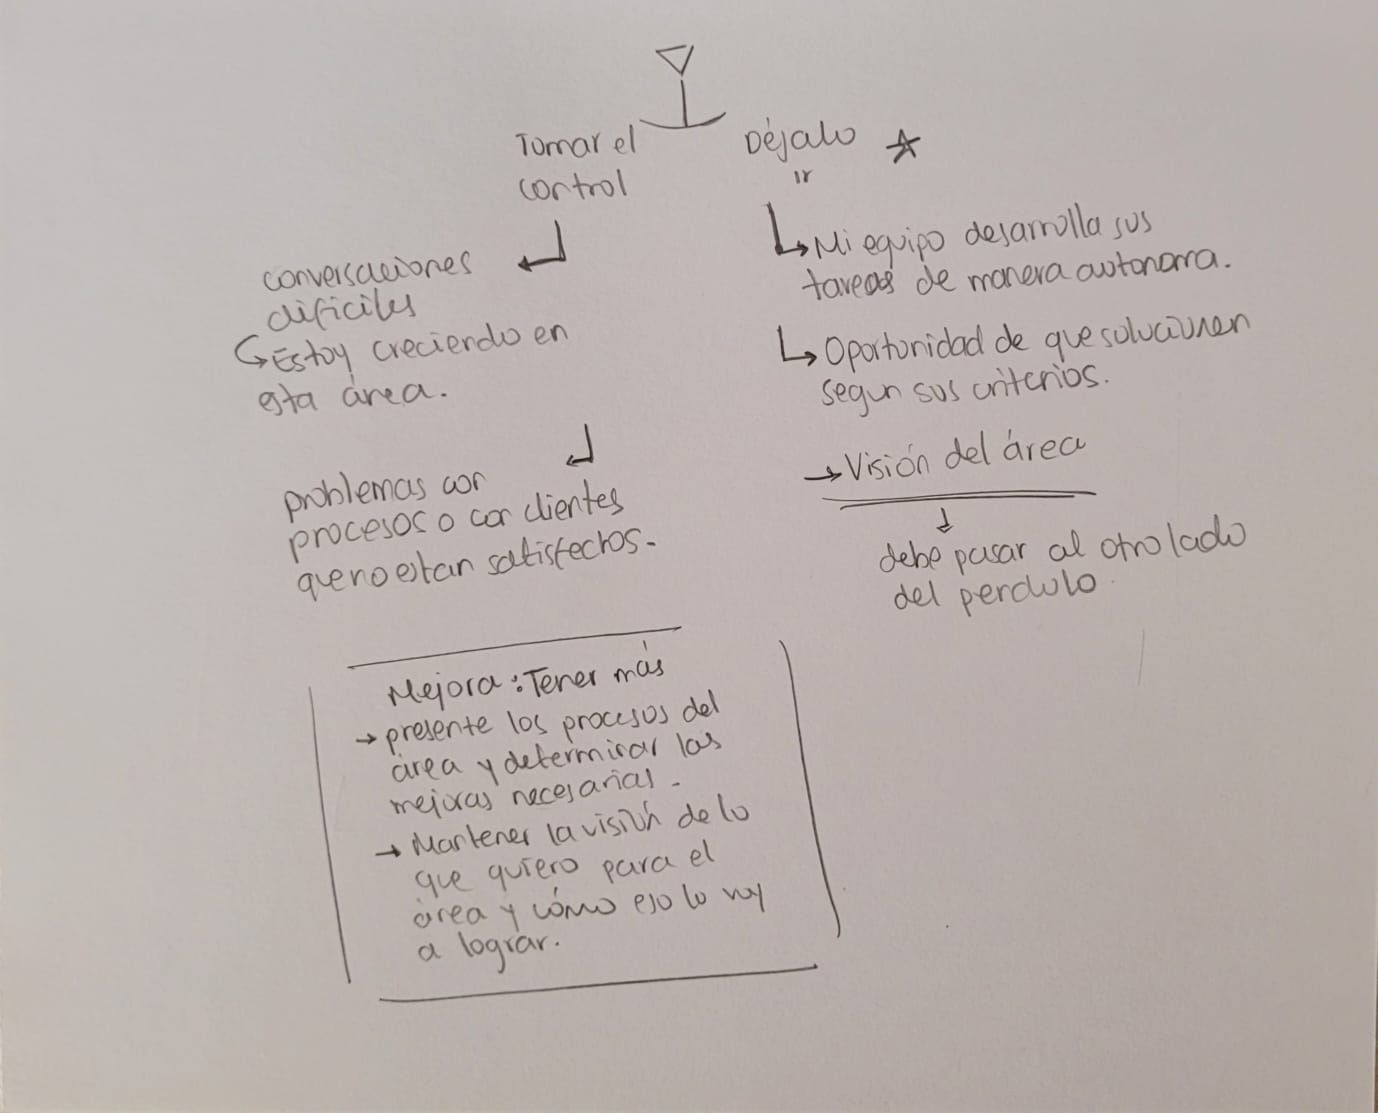 Tomar el
control
conversaciones
dificiles
Estoy creciendo en
esta área.
problemas con
procesos o con clientes
que no estan satisfechos.
Déjalo ir
Mi equipo desarrolla sus
tareas de manera autonoma.
Oportunidad de que solucionen
segun sus criterios.
Visión del área
debe pasar al otro lado
del pendulo.
Mejora: Tener más
presente los procesos del
área y determinar las
mejoras necesarias.
Mantener la visión de lo
que quiero para el
área y cómo eso lo voy
a lograr.